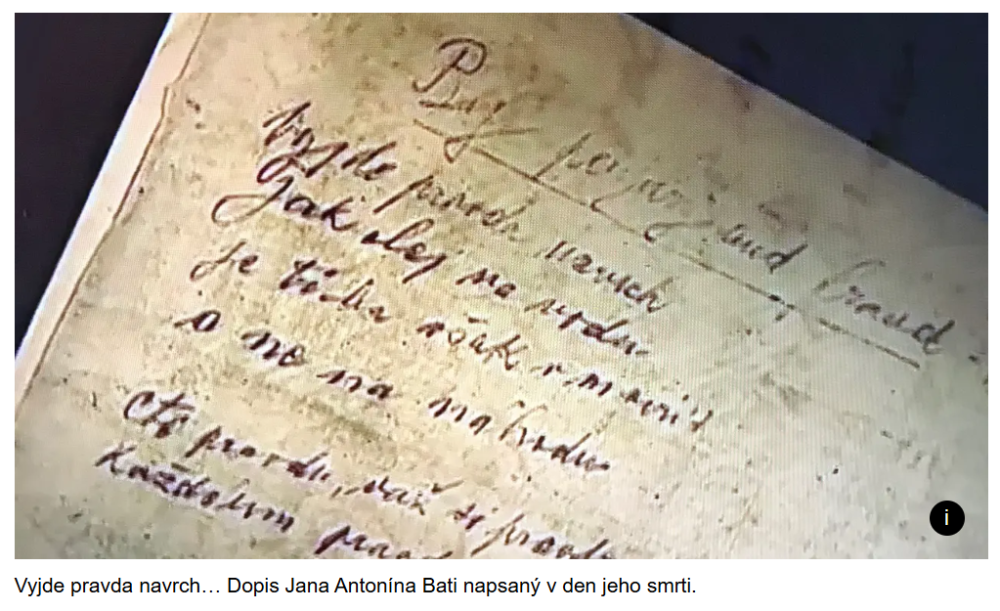 By perjury and fraud
Vyjde pravda navrch
Jak olej na vodu
Je třeba však
a ne na náhodu
Cti pravdu, važ si pravdy
Každému
i
Vyjde pravda navrch… Dopis Jana Antonína Bati napsaný v den jeho smrti.